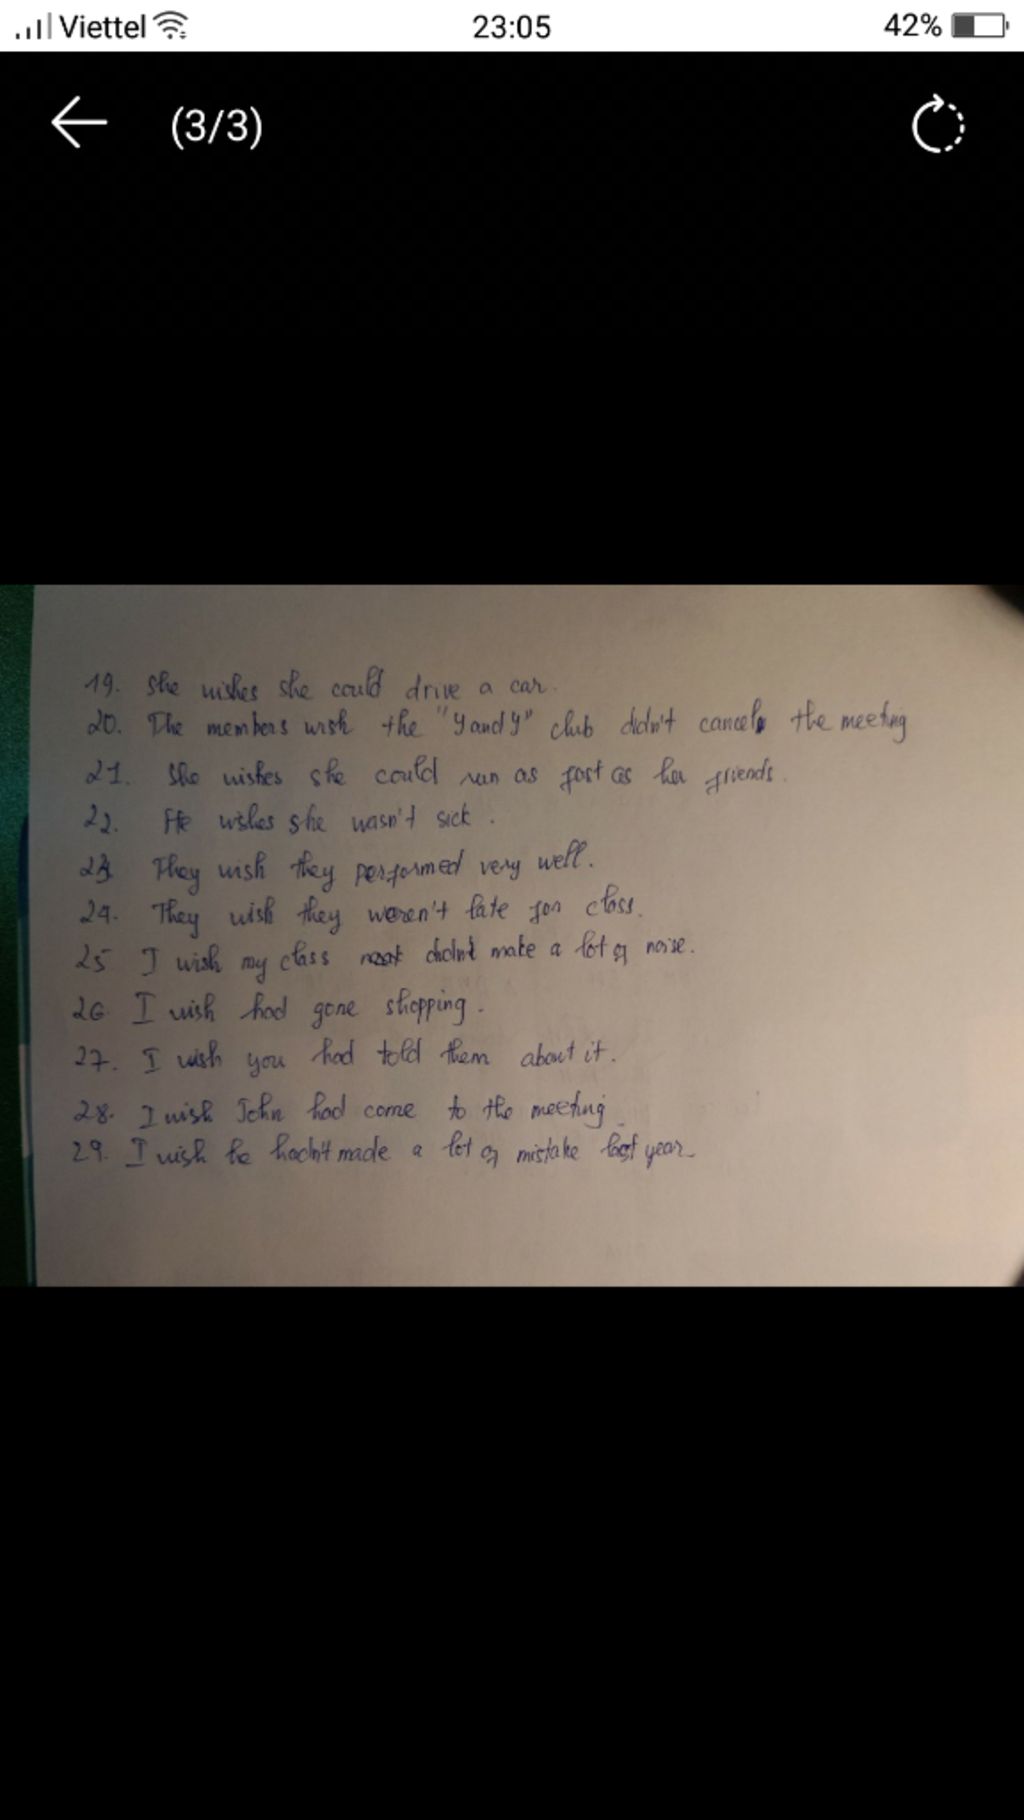 Viettel 23:05 42%
(3/3)
19. She wishes she could drive a car.
20. The members wish the "Y and Y" club didn't cancel the meeting
21. She wishes she could run as fast as her friends.
22. He wishes she wasn't sick.
23. They wish they performed very well.
24. They wish they weren't late for class.
25 I wish my class didn't make a lot of noise.
26. I wish had gone shopping.
27. I wish you had told them about it.
28. I wish John had come to the meeting
29. I wish he hadn't made a lot of mistake last year